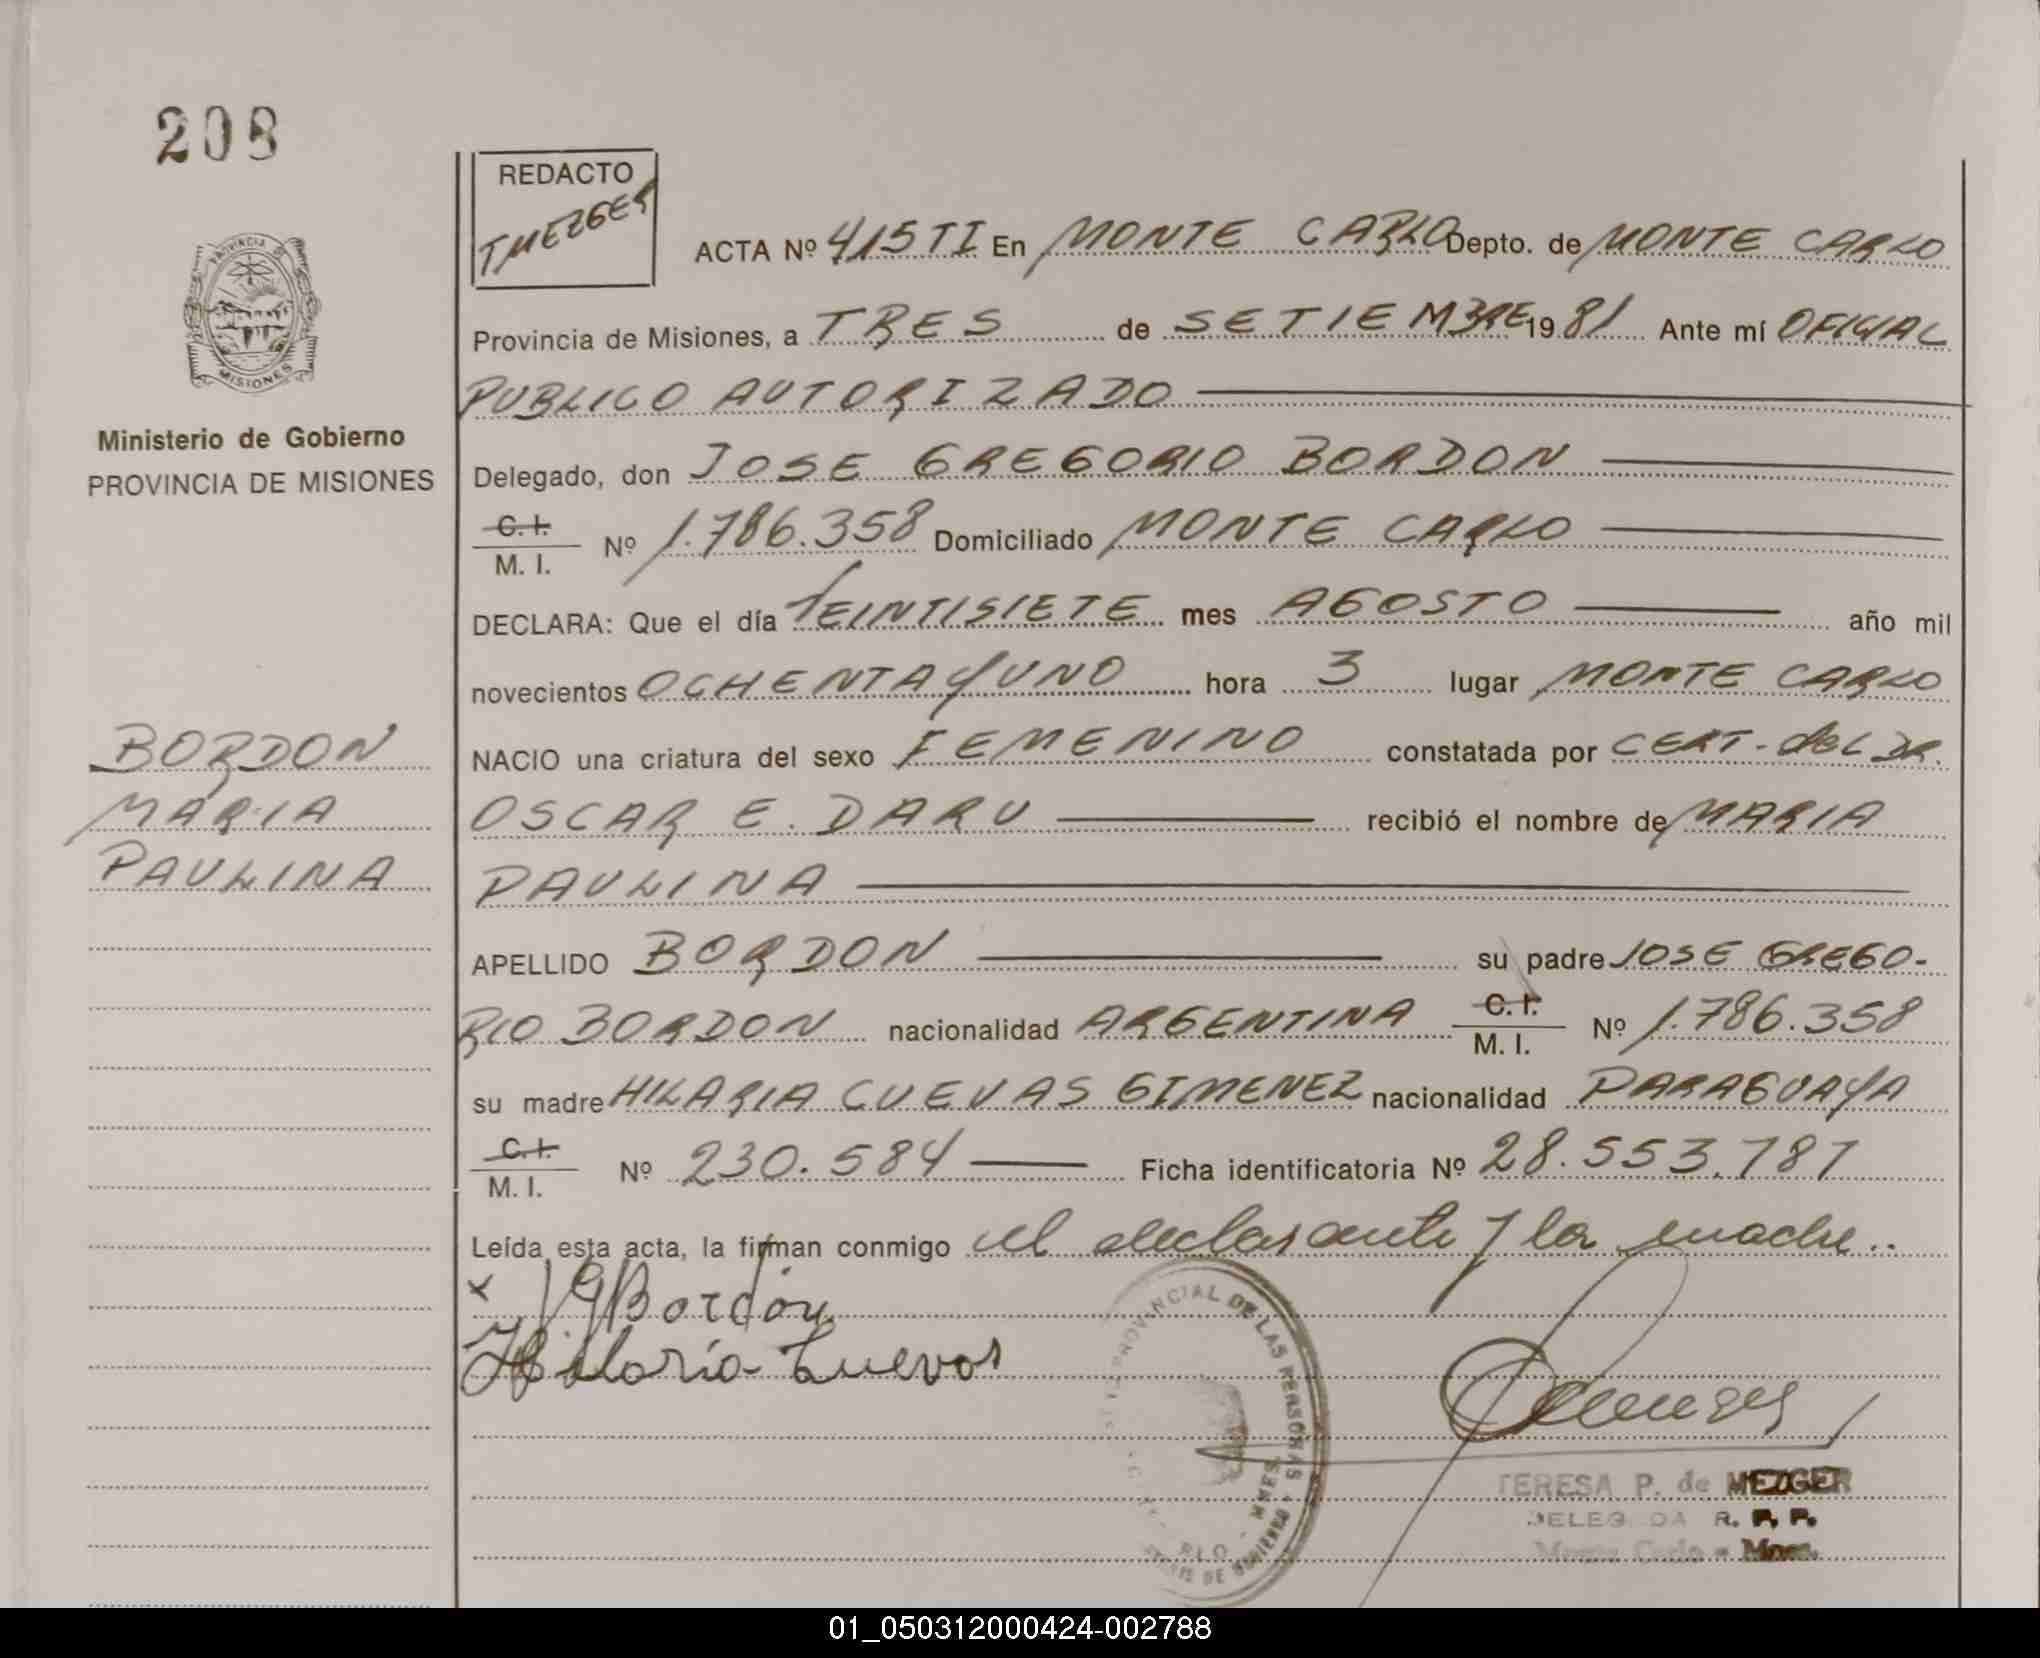 208
REDACTO
TMEZGER
ACTA Nº 415 TI En MONTE CARLO Depto. de MONTE CARLO
Provincia de Misiones, a TRES de SETIEMBRE 1981 Ante mí OFICIAL
PUBLICO AUTORIZADO
Delegado, don JOSE GREGORIO BORDON
C. I.
M. I. Nº 1.786.358 Domiciliado MONTE CARLO
DECLARA: Que el día VEINTISIETE mes AGOSTO año mil
novecientos OCHENTA Y UNO hora 3 lugar MONTE CARLO
NACIO una criatura del sexo FEMENINO constatada por CERT. del DR.
OSCAR E. DARU recibió el nombre de MARIA
PAULINA
APELLIDO BORDON su padre JOSE GREGO-
RIO BORDON nacionalidad ARGENTINA C. I.
M. I. Nº 1.786.358
su madre HILARIA CUEVAS GIMENEZ nacionalidad PARAGUAYA
C. I.
M. I. Nº 230.584 Ficha identificatoria Nº 28.553.787
Leída esta acta, la firman conmigo el declarante y la madre..
x JGBordón
Hilaria Cuevas
PROVINCIAL DE LAS PERSONAS
MNES.
TERESA P. de MEZGER
DELEGADA R. P. P.
Monte Carlo - Mnes.
PROVINCIA DE
MISIONES
Ministerio de Gobierno
PROVINCIA DE MISIONES
BORDON
MARIA
PAULINA
01_050312000424-002788